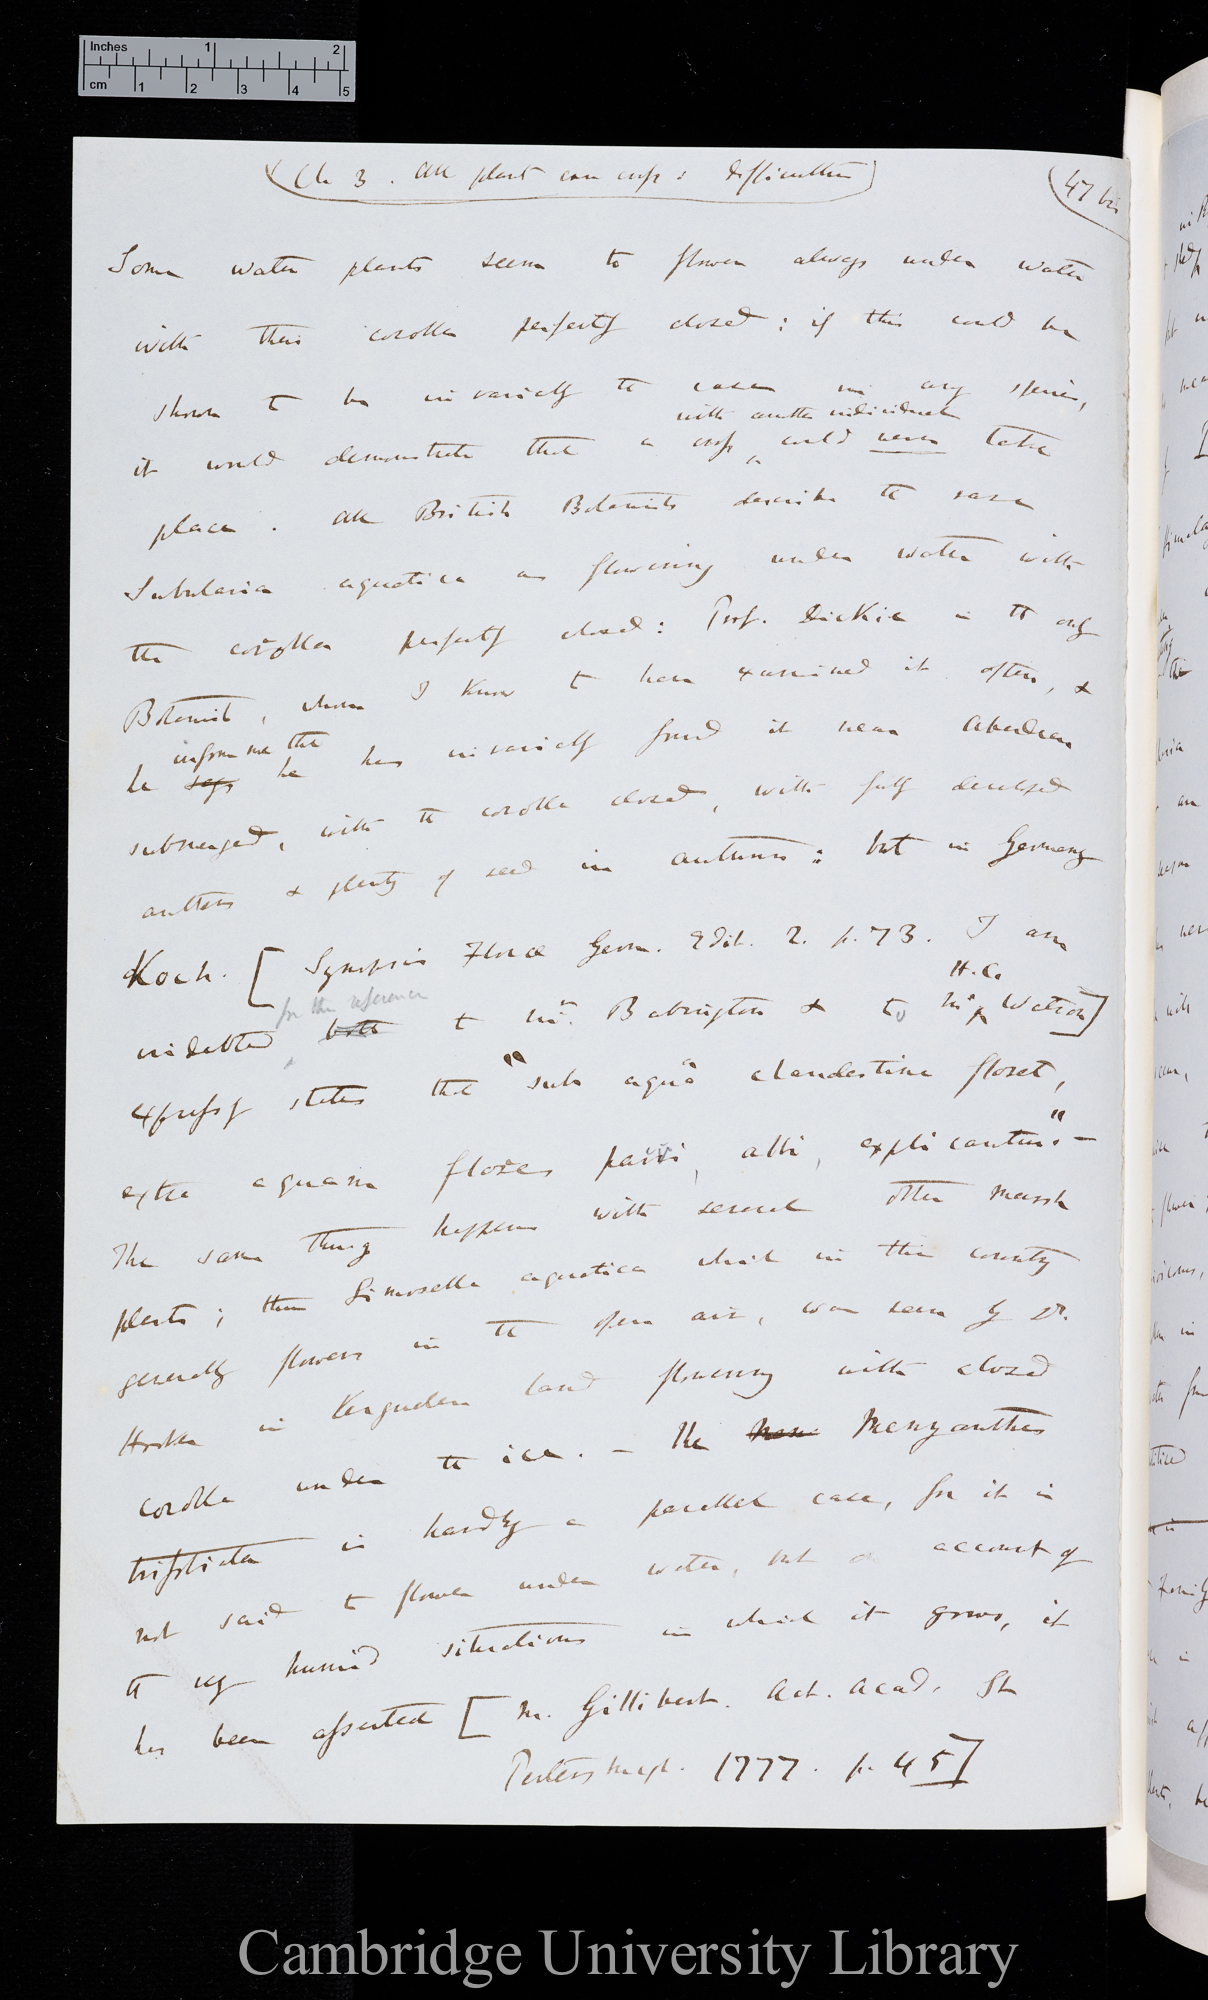 Inches 1 2
cm 1 2 3 4 5
(Ch 3. All plants can cross: difficulties)
(47 bis
Some water plants seem to flower always under water
with their corolla perfectly closed; if this could be
shown to be invariably the case in any species,
with another individual
it would demonstrate that a cross ^ could never take
place. All British Botanists describe the rare
Subularia aquatica as flowering under water with
the corolla perfectly closed: Prof. Dickie is the only
Botanist, whom I know to have examined it often, &
informs me that
he says he has invariably found it near Aberdeen
submerged, with the corolla closed, with fully developed
anthers & plenty of seed in autumn: but in Germany
Koch. [Synopsis Florae Germ. Edit. 2. p. 73. I am
for the reference H.C.
indebted both to Mr. Babington & to Mr ^ Watson]
expressly states that "sub aquâ clandestine floret,
extra aquam flores parvi, albi, explicantur." —
The same thing happens with several other marsh
plants; thus Limosella aquatica which in this country
generally flowers in the open air, was seen by Dr.
Hooker in Kerguelen land flowering with closed
corolla under the ice. — The Menyanthes
trifoliata is hardly a parallel case, for it is
not said to flower under water, but on account of
the very humid situations in which it grows, it
has been asserted [M. Gillibert. Act. Acad. St
Petersburgh. 1777. p. 45]
Cambridge University Library